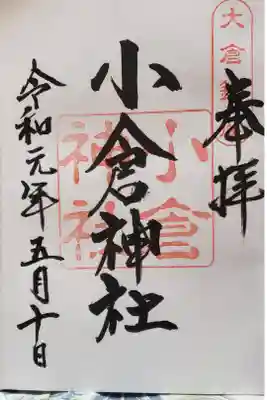 奉拝
小倉神社
令和元年五月十日
大倉
小倉
神社